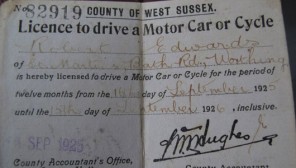 No 82919 COUNTY OF WEST SUSSEX.
Licence to drive a Motor Car or Cycle
Robert Edwards
of St. Martin's, Bath Rd, Worthing
is hereby licensed to drive a Motor Car or Cycle for the period of
twelve months from the 16th day of September 1925
until the 15th day of September 1926, inclusive.
SEP 1925
Hughes
County Accountant's Office,
County Accountant